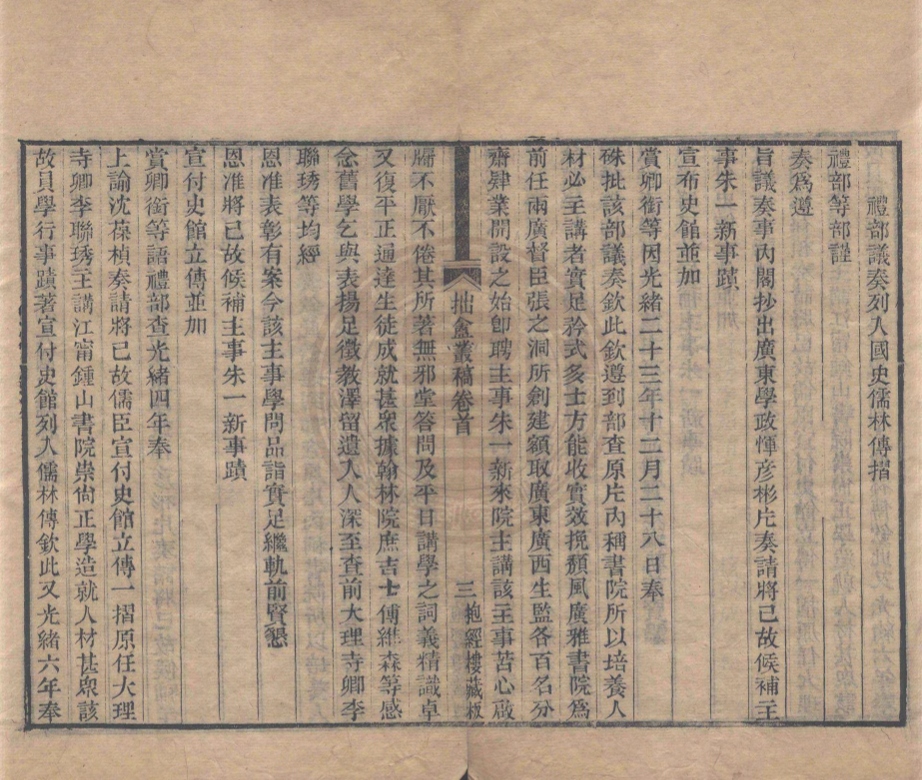 禮部議奏列入國史儒林傳摺
禮部等部謹
奏爲遵
旨議奏事內閣抄出廣東學政惲彥彬片奏請將已故候補主
事朱一新事蹟
宣布史館並加
賞卿銜等因光緒二十三年十二月二十八日奉
硃批該部議奏欽此欽遵到部查原片內稱書院所以培養人
材必主講者實足矜式多士方能收實效挽頹風廣雅書院爲
前任兩廣督臣張之洞所創建額取廣東廣西生監各百名分
齋肄業開設之始卽聘主事朱一新來院主講該主事苦心啟
拙盦叢稿卷首
三
抱經樓藏板
牖不厭不倦其所著無邪堂答問及平日講學之詞義精識卓
又復平正通達生徒成就甚衆據翰林院庶吉士傅維森等感
念舊學乞與表揚足徵敎澤留遺入人深至查前大理寺卿李
聯琇等均經
恩准表彰有案今該主事學問品詣實足繼軌前賢懇
恩准將已故候補主事朱一新事蹟
宣付史館立傳並加
賞卿銜等語禮部查光緒四年奉
上諭沈葆楨奏請將已故儒臣宣付史館立傳一摺原任大理
寺卿李聯琇主講江甯鍾山書院崇尙正學造就人材甚衆該
故員學行事蹟著宣付史館列入儒林傳欽此又光緒六年奉